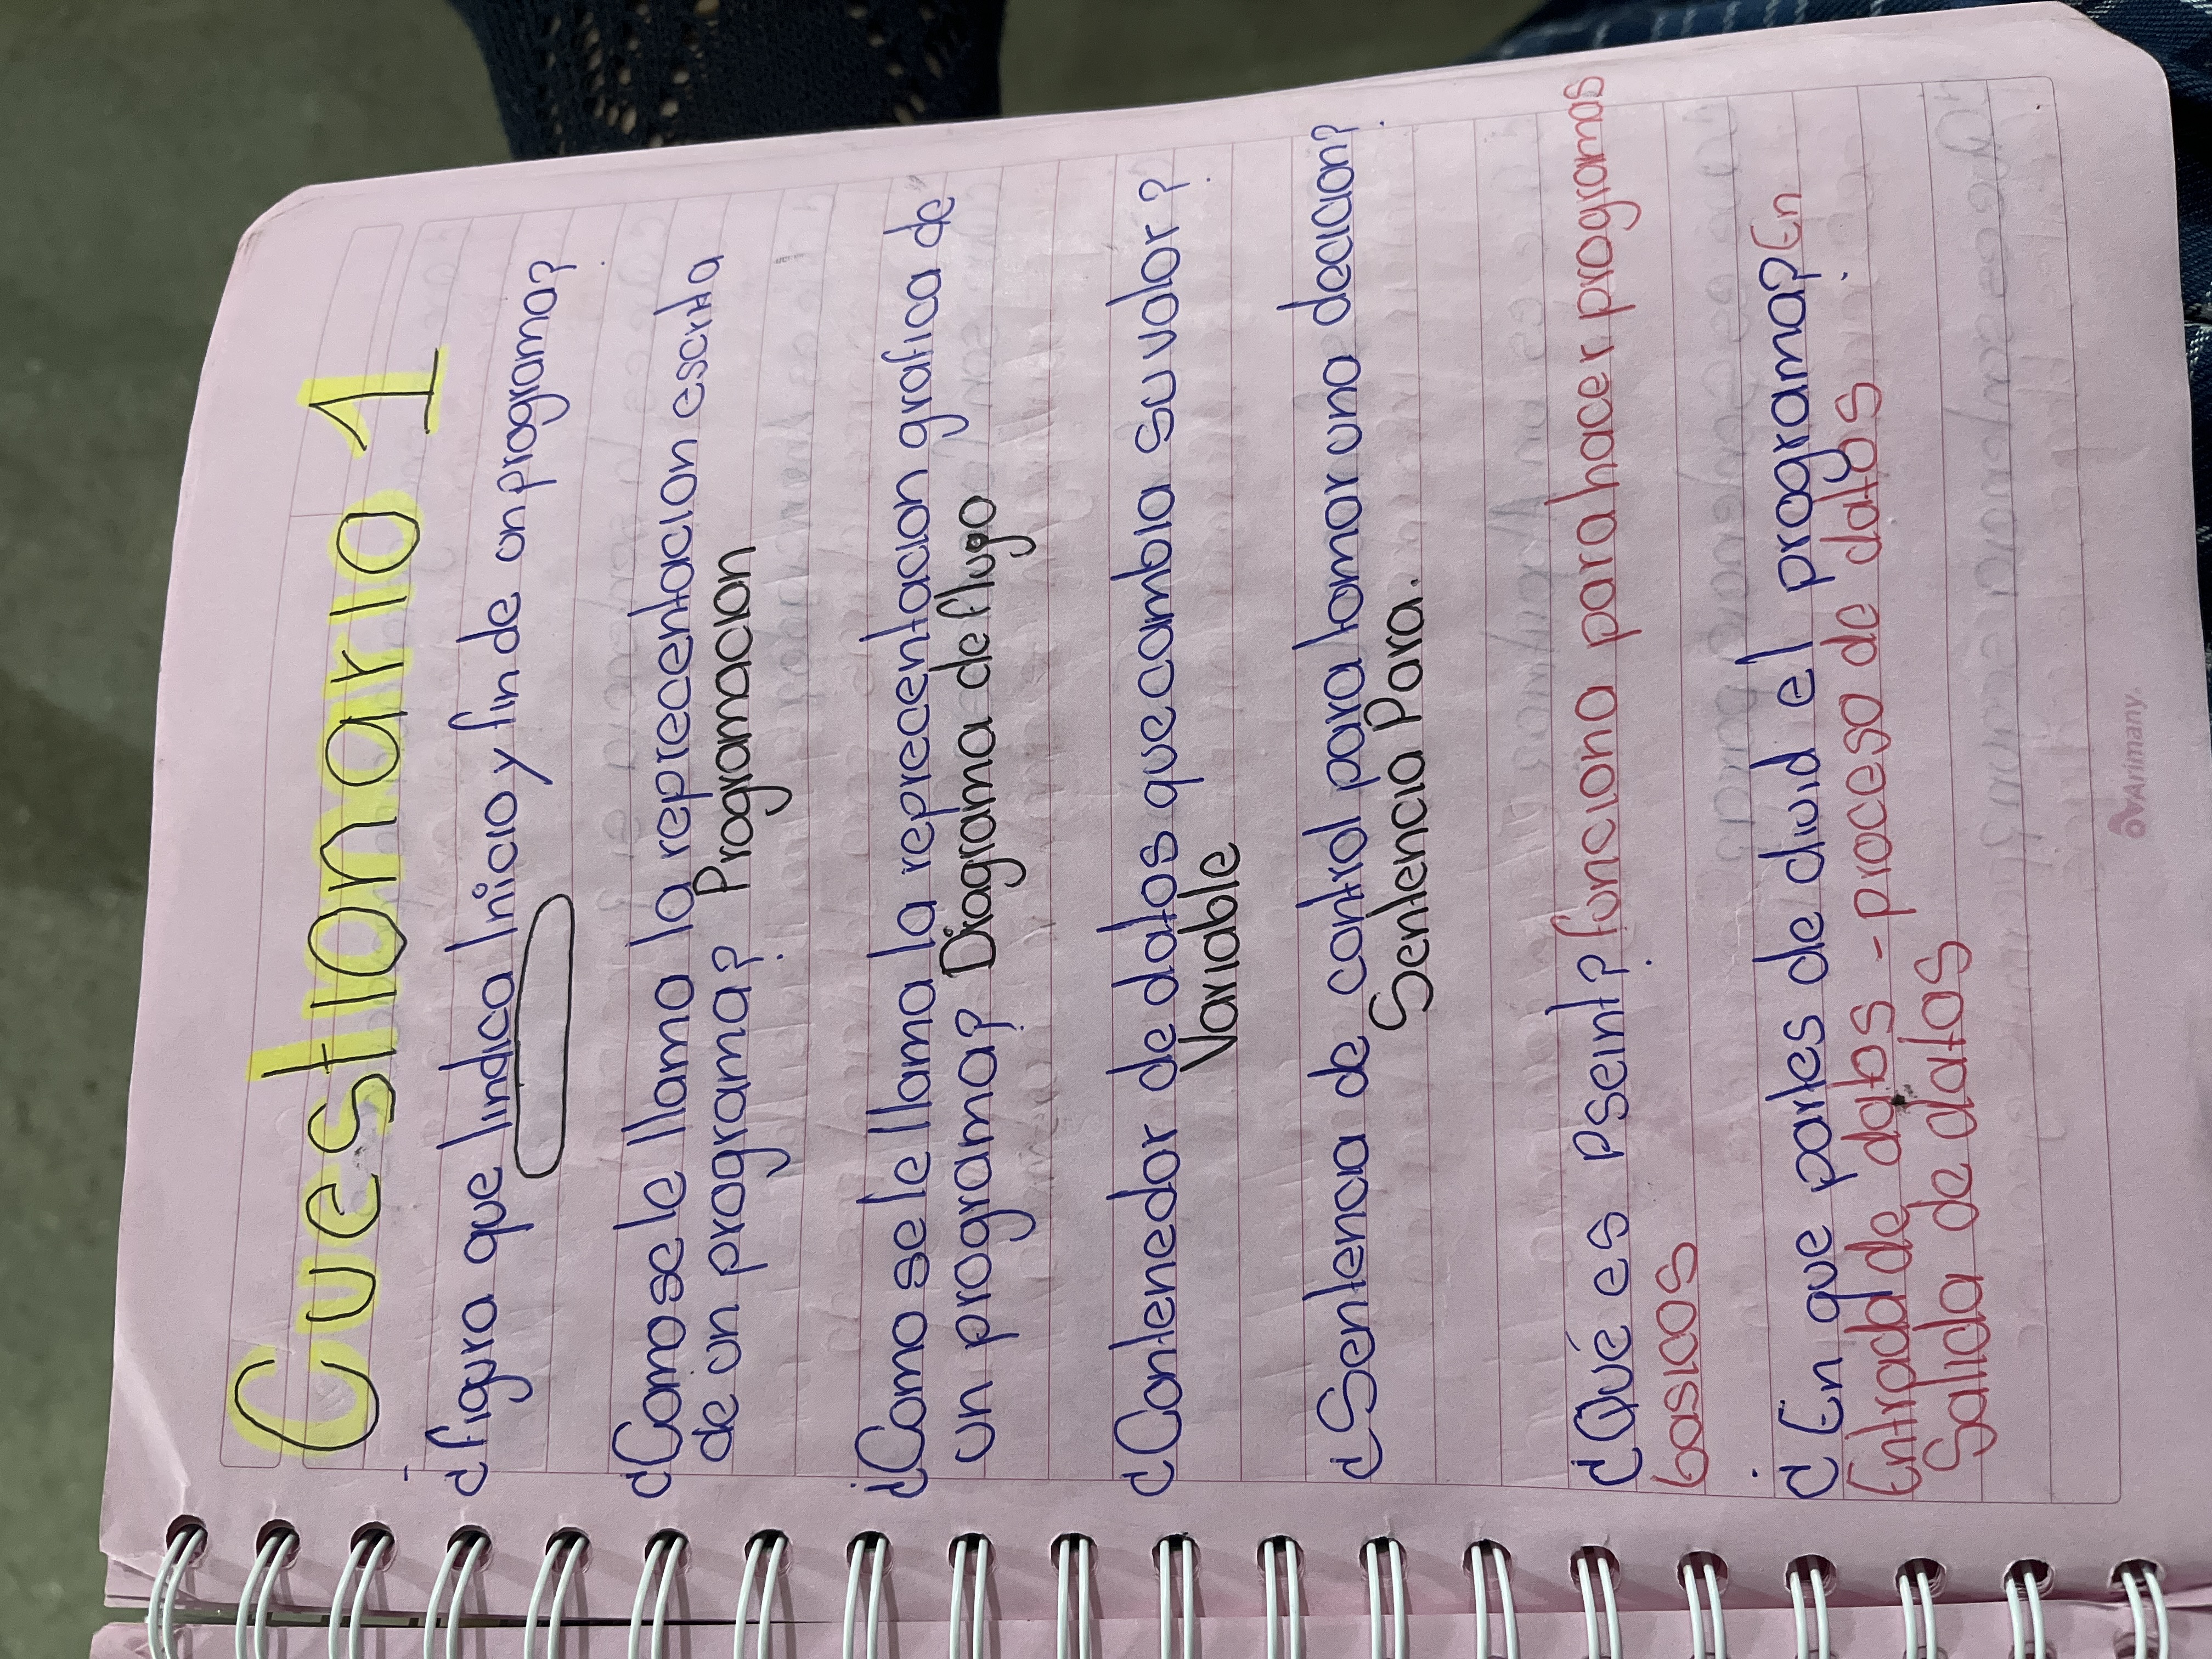 Cuestionario 1
¿figura que Indica Inicio y fin de un programa?
¿Como se le llama la reprecentacion escrita
de un programa? Programacion
¿Como se le llama la reprecentacion grafica de
un programa? Diagrama de flugo
¿Contenedor de datos que cambia su valor?
Variable
¿Sentencia de control para tomar una decicion?
Sentencia Para.
¿Qué es Pseint? funciona para hacer programas
basicos
¿En que partes de divid el programa? En
Entrada de datos - proceso de datos
Salida de datos
Arimany